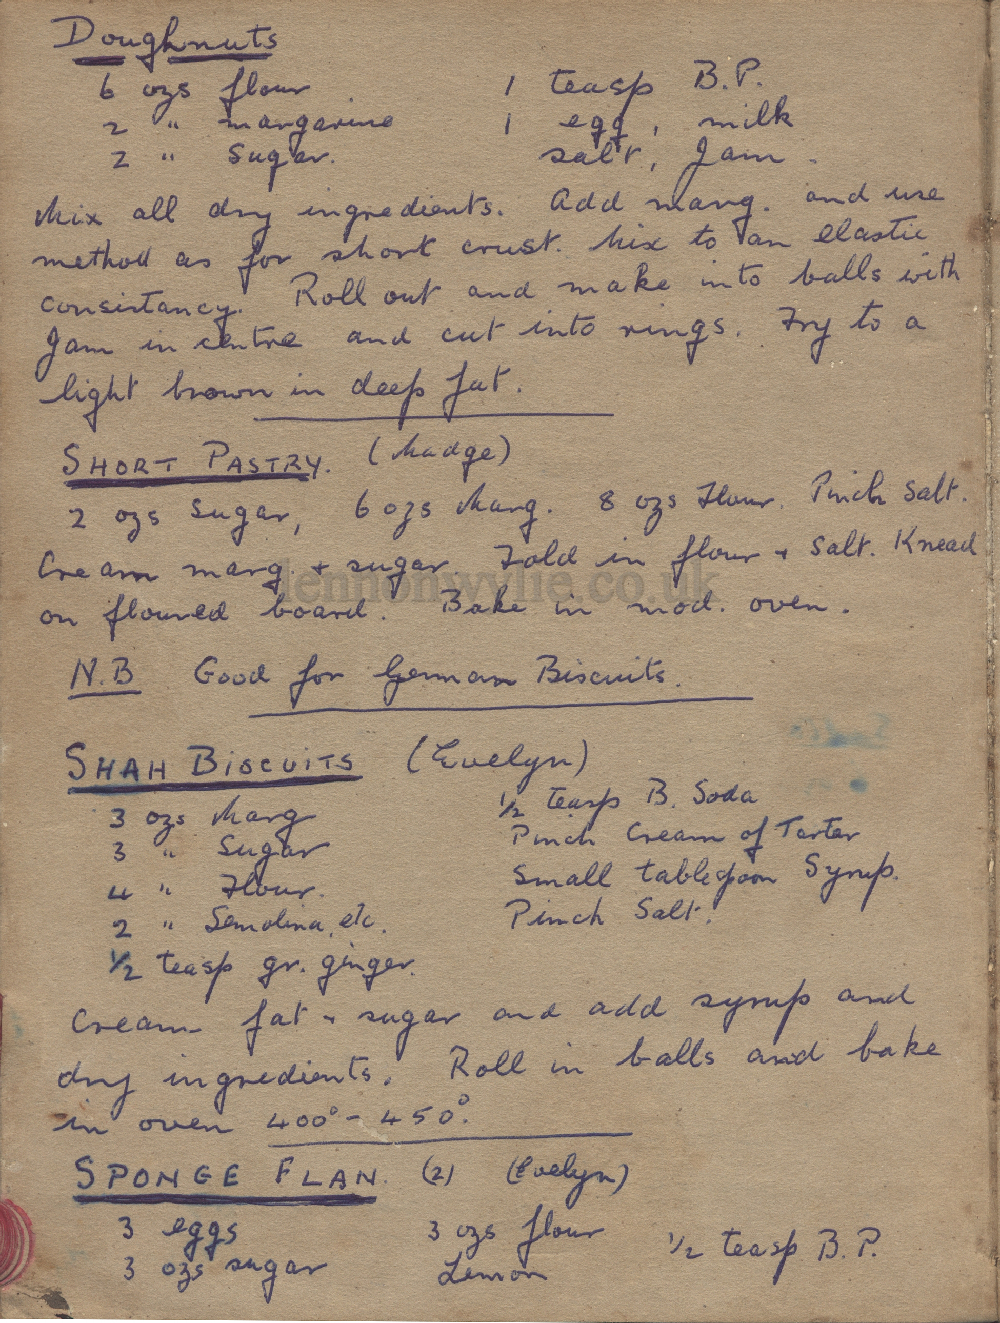 Doughnuts
6 ozs flour 1 teasp B.P.
2 " margarine 1 egg, milk
2 " Sugar. salt, Jam.
Mix all dry ingredients. Add marg. and use
method as for short crust. Mix to an elastic
consistancy. Roll out and make into balls with
Jam in centre and cut into rings. Fry to a
light brown in deep fat.
SHORT PASTRY. (Madge)
2 ozs Sugar, 6 ozs Marg. 8 ozs Flour. Pinch Salt.
Cream marg + sugar. Fold in flour + Salt. Knead
on floured board. Bake in mod. oven.
lennonwylie.co.uk
N.B Good for German Biscuits.
SHAH BISCUITS (Evelyn)
3 ozs Marg 1/2 teasp B. Soda
3 " Sugar Pinch Cream of Tarter
4 " Flour. Small tablespoon Syrup.
2 " Semolina, etc. Pinch Salt.
1/2 teasp gr. ginger.
Cream fat + sugar and add syrup and
dry ingredients. Roll in balls and bake
in oven 400° - 450°.
SPONGE FLAN. (2) (Evelyn)
3 eggs 3 ozs flour 1/2 teasp B.P.
3 ozs sugar Lemon